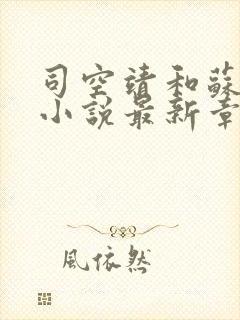 司空靖和蘇
小說最新章
風依然